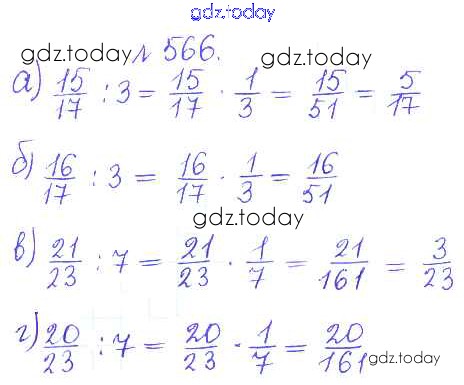 gdz.today
gdz.today № 566.
а) 15/17 : 3 = 15/17 · 1/3 = 15/51 = 5/17
gdz.today
б) 16/17 : 3 = 16/17 · 1/3 = 16/51
gdz.today
в) 21/23 : 7 = 21/23 · 1/7 = 21/161 = 3/23
г) 20/23 : 7 = 20/23 · 1/7 = 20/161
gdz.today